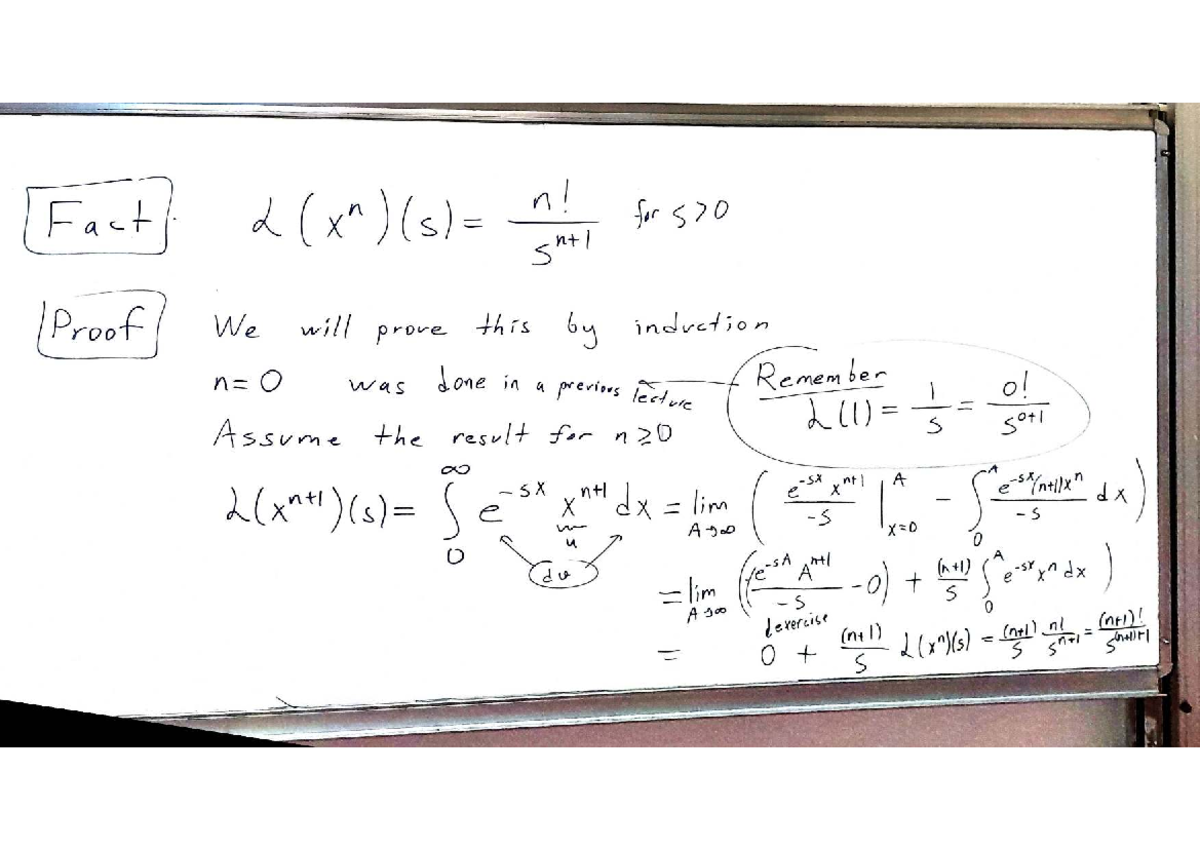 Fact. ℒ(xⁿ)(s) = n!/sⁿ⁺¹ for s>0
Proof We will prove this by induction
n=0 was done in a previous lecture
Remember
ℒ(1) = 1/s = 0!/s⁰⁺¹
Assume the result for n≥0
ℒ(xⁿ⁺¹)(s) = ∫₀^∞ e^{-sx} xⁿ⁺¹ dx = lim_{A→∞} ( e^{-sx} xⁿ⁺¹/-s |_{x=0}^{A} - ∫₀^A e^{-sx}(n+1)xⁿ/-s dx )
u
dv
= lim_{A→∞} ( (e^{-sA} Aⁿ⁺¹/-s - 0) + (n+1)/s ∫₀^A e^{-sx} xⁿ dx )
↓ exercise
= 0 + (n+1)/s ℒ(xⁿ)(s) = (n+1)/s n!/sⁿ⁺¹ = (n+1)!/s^{(n+1)+1}